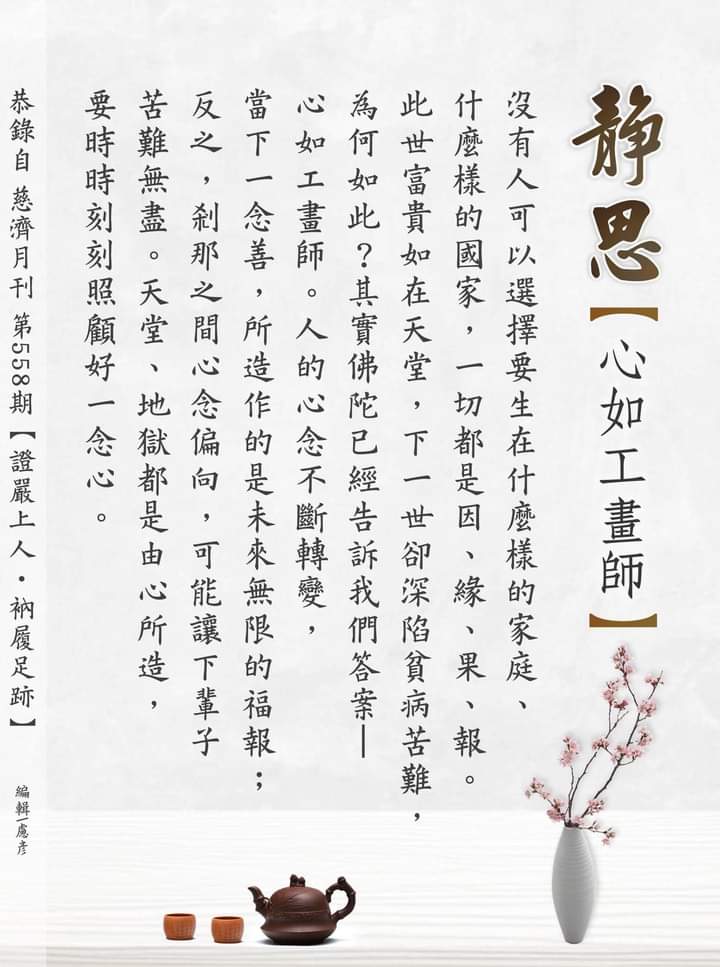 靜思
【心如工畫師】
沒有人可以選擇要生在什麼樣的家庭、
什麼樣的國家，一切都是因、緣、果、報。
此世富貴如在天堂，下一世卻深陷貧病苦難，
為何如此？其實佛陀已經告訴我們答案—
心如工畫師。人的心念不斷轉變，
當下一念善，所造作的是未來無限的福報；
反之，剎那之間心念偏向，可能讓下輩子
苦難無盡。天堂、地獄都是由心所造，
要時時刻刻照顧好一念心。
恭錄自 慈濟月刊 第558期【證嚴上人・衲履足跡】
編輯／慮彥